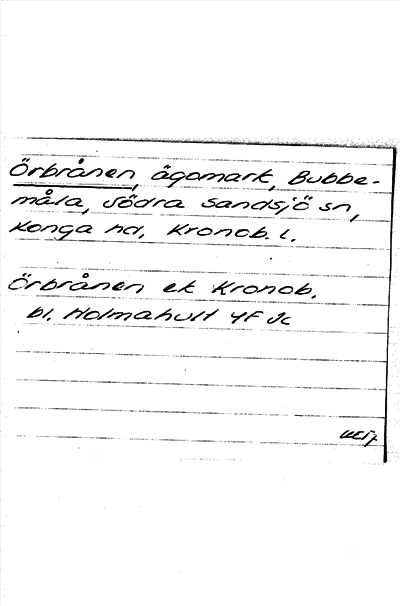 Örbrånen, ägomark, Bubbe-
måla, Södra Sandsjö sn,
Konga hd, Kronob. l.
Örbrånen ek Kronob.
bl. Holmahult 4F 9c